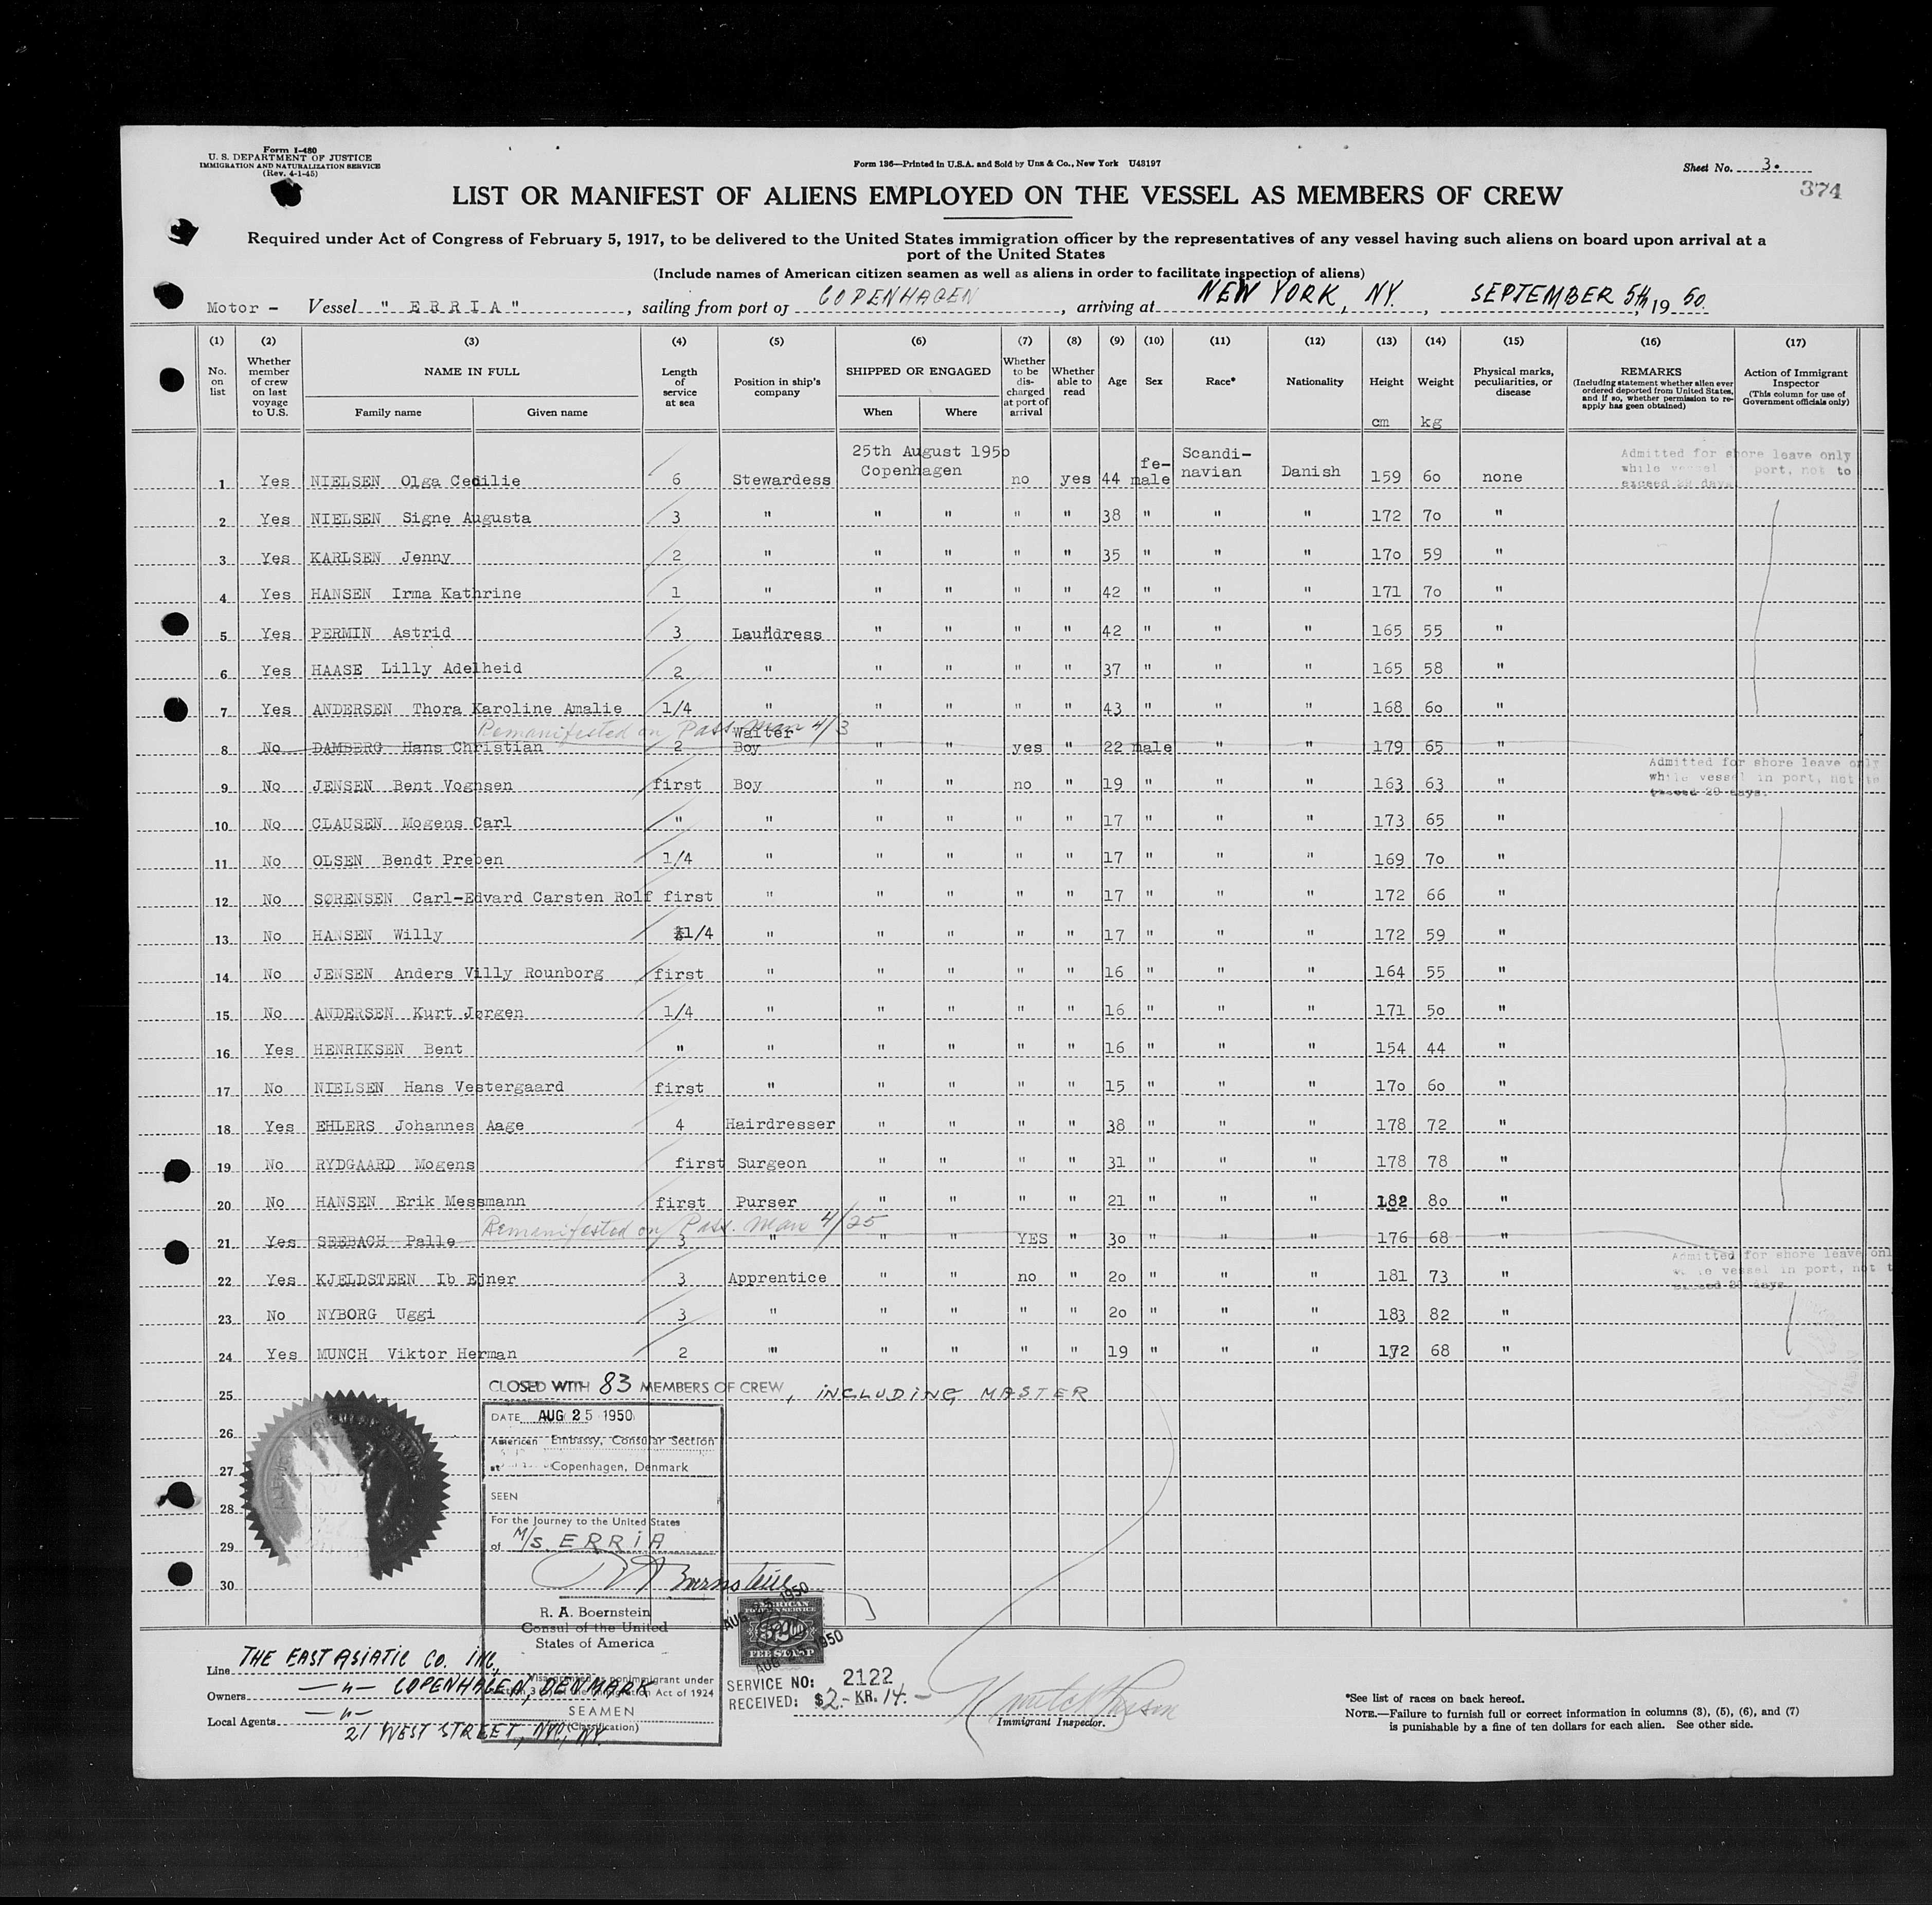 Form I-480
U. S. DEPARTMENT OF JUSTICE
IMMIGRATION AND NATURALIZATION SERVICE
(Rev. 4-1-45)
Form 136—Printed in U.S.A. and Sold by Unz & Co., New York U43197
Sheet No. 3.
374
LIST OR MANIFEST OF ALIENS EMPLOYED ON THE VESSEL AS MEMBERS OF CREW
Required under Act of Congress of February 5, 1917, to be delivered to the United States immigration officer by the representatives of any vessel having such aliens on board upon arrival at a
port of the United States
(Include names of American citizen seamen as well as aliens in order to facilitate inspection of aliens)
Motor - Vessel " E R R I A ", sailing from port of COPENHAGEN, arriving at NEW YORK, NY., SEPTEMBER 5th, 19 50.
(1) (2) (3) (4) (5) (6) (7) (8) (9) (10) (11) (12) (13) (14) (15) (16) (17)
No. on list
Whether member of crew on last voyage to U.S.
NAME IN FULL
Family name
Given name
Length of service at sea
Position in ship's company
SHIPPED OR ENGAGED
When
Where
Whether to be discharged at port of arrival
Whether able to read
Age
Sex
Race*
Nationality
Height
cm
Weight
kg
Physical marks, peculiarities, or disease
REMARKS
(Including statement whether alien ever ordered deported from United States, and if so, whether permission to re-apply has geen obtained)
Action of Immigrant Inspector
(This column for use of Government officials only)
25th August 1950
Copenhagen
1 Yes NIELSEN Olga Cecilie 6 Stewardess no yes 44 fe-male Scandi-navian Danish 159 60 none
Admitted for shore leave only
while vessel port, not to
exceed 29 days
2 Yes NIELSEN Signe Augusta 3 " " " " " 38 " " " 172 70 "
3 Yes KARLSEN Jenny 2 " " " " " 35 " " " 170 59 "
4 Yes HANSEN Irma Kathrine 1 " " " " " 42 " " " 171 70 "
5 Yes PERMIN Astrid 3 Laundress " " " " 42 " " " 165 55 "
6 Yes HAASE Lilly Adelheid 2 " " " " " 37 " " " 165 58 "
7 Yes ANDERSEN Thora Karoline Amalie 1/4 " " " " " 43 " " " 168 60 "
Remanifested on Pass. Man 4/3
8 No DAMBERG Hans Christian 2 Waiter Boy " " yes " 22 male " " 179 65 "
Admitted for shore leave only
while vessel in port, not to
exceed 29 days.
9 No JENSEN Bent Vognsen first Boy " " no " 19 " " " 163 63 "
10 No CLAUSEN Mogens Carl " " " " " " 17 " " " 173 65 "
11 No OLSEN Bendt Preben 1/4 " " " " " 17 " " " 169 70 "
12 No SØRENSEN Carl-Edvard Carsten Rolf first " " " " " 17 " " " 172 66 "
13 No HANSEN Willy 1/4 " " " " " 17 " " " 172 59 "
14 No JENSEN Anders Villy Rounborg first " " " " " 16 " " " 164 55 "
15 No ANDERSEN Kurt Jørgen 1/4 " " " " " 16 " " " 171 50 "
16 Yes HENRIKSEN Bent " " " " " " 16 " " " 154 44 "
17 No NIELSEN Hans Vestergaard first " " " " " 15 " " " 170 60 "
18 Yes EHLERS Johannes Aage 4 Hairdresser " " " " 38 " " " 178 72 "
19 No RYDGAARD Mogens first Surgeon " " " " 31 " " " 178 78 "
20 No HANSEN Erik Messmann first Purser " " " " 21 " " " 182 80 "
Remanifested on Pass. Man 4/25
21 Yes SEEBACH Palle 3 " " " YES " 30 " " " 176 68 "
Admitted for shore leave onl
vessel in port, not t
exceed 29 days
22 Yes KJELDSTEEN Ib Ejner 3 Apprentice " " no " 20 " " " 181 73 "
23 No NYBORG Uggi 3 " " " " " 20 " " " 183 82 "
24 Yes MUNCH Viktor Herman 2 " " " " " 19 " " " 172 68 "
CLOSED WITH 83 MEMBERS OF CREW, INCLUDING MASTER
25
26
27
28
29
30
DATE AUG 25 1950
American Embassy, Consular Section
at Copenhagen, Denmark
SEEN
For the Journey to the United States
of M/s. ERRIA
R. A. Boernstein
Consul of the United
States of America
nonimmigrant under
Immigration Act of 1924
SEAMEN
(Classification)
AUG 25 1950
AMERICAN
FOREIGN SERVICE
$2.00
FEE STAMP
AUG 25 1950
SERVICE NO: 2122
RECEIVED: $2.- KR. 14.-
Line THE EAST ASIATIC CO. INC,
Owners —"— COPENHAGEN, DENMARK
Local Agents —"—
21 WEST STREET, NYC, NY.
Immigrant Inspector.
*See list of races on back hereof.
NOTE.—Failure to furnish full or correct information in columns (3), (5), (6), and (7)
is punishable by a fine of ten dollars for each alien. See other side.